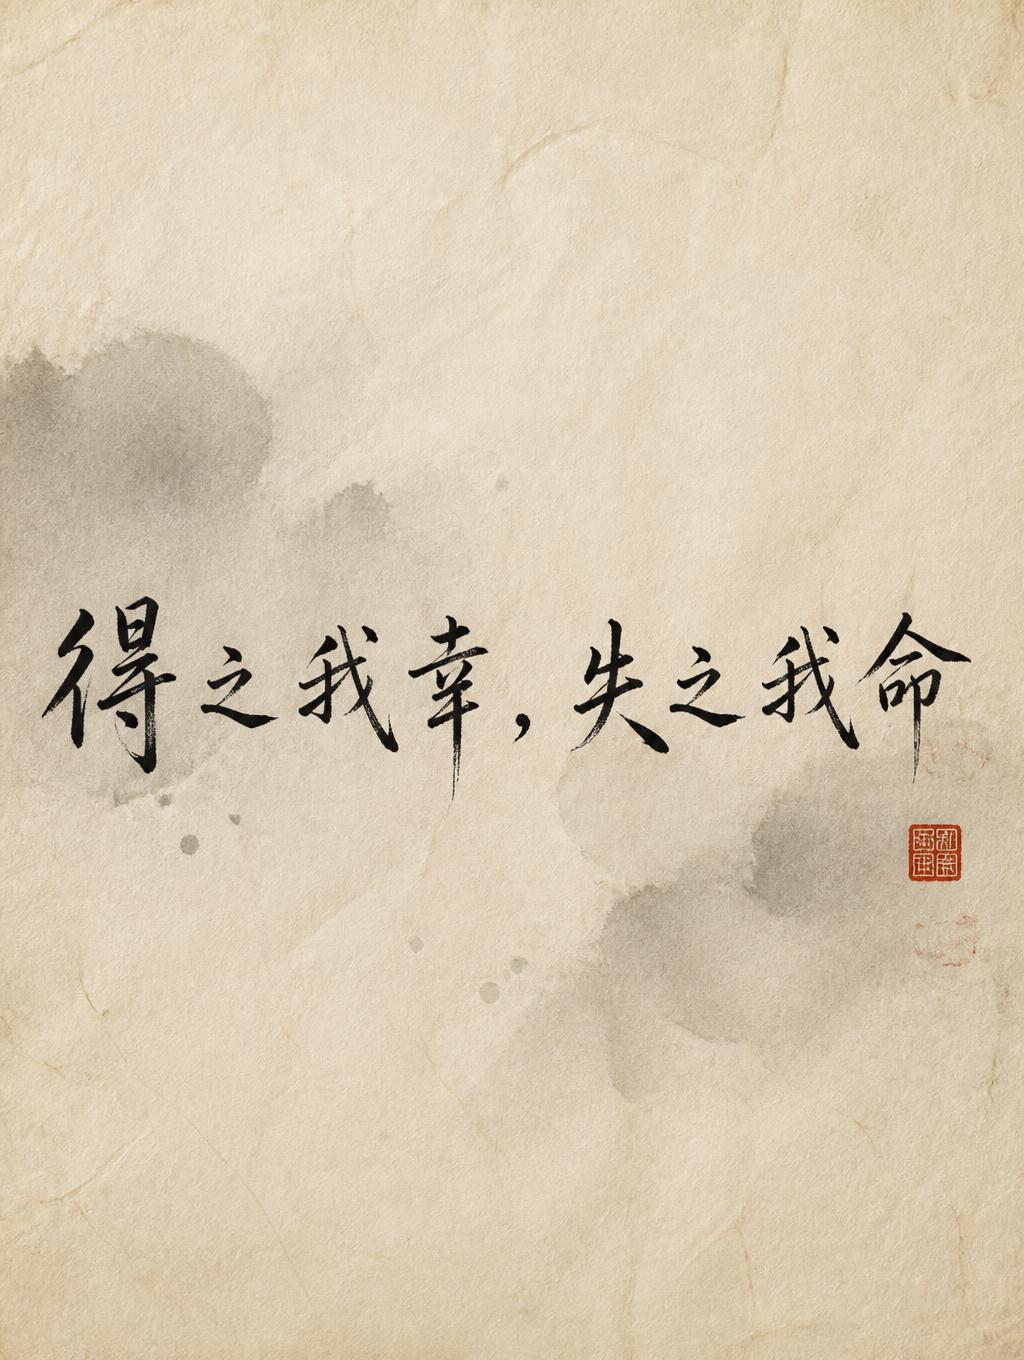 得之我幸，失之我命